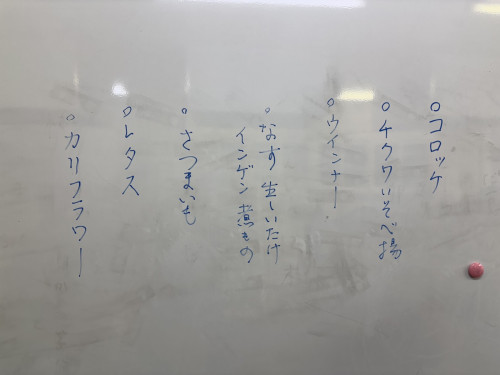 ○コロッケ
○チクワいそべ揚
○ウインナー
○なす 生しいたけ
インゲン 煮もの
○さつまいも
○レタス
○カリフラワー